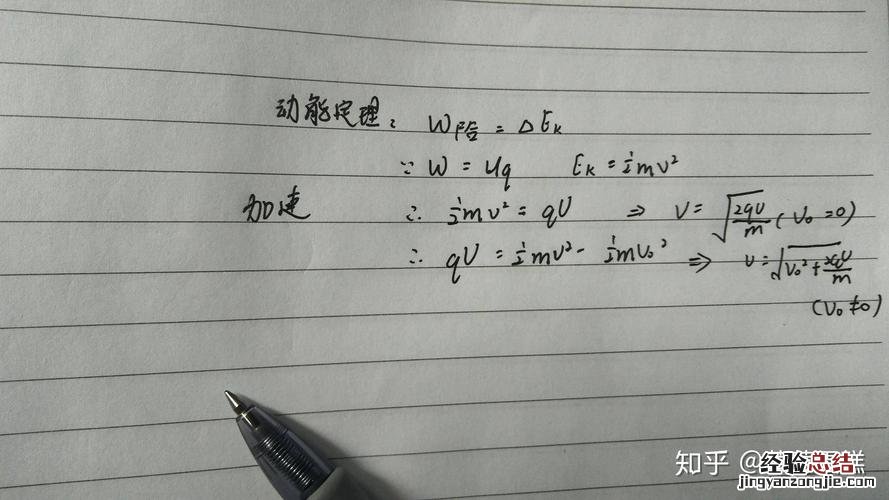 动能定理: W合 = ΔEk
∵ W = Uq Ek = ½mv²
加速 ∴ ½mv² = qU ⇒ v = √(2qU/m) (v₀ = 0)
∴ qU = ½mv² - ½mv₀² ⇒ v = √(v₀² + 2qU/m)
(v₀ ≠ 0)
知乎 @
经验总结
jingyanzongjie.com